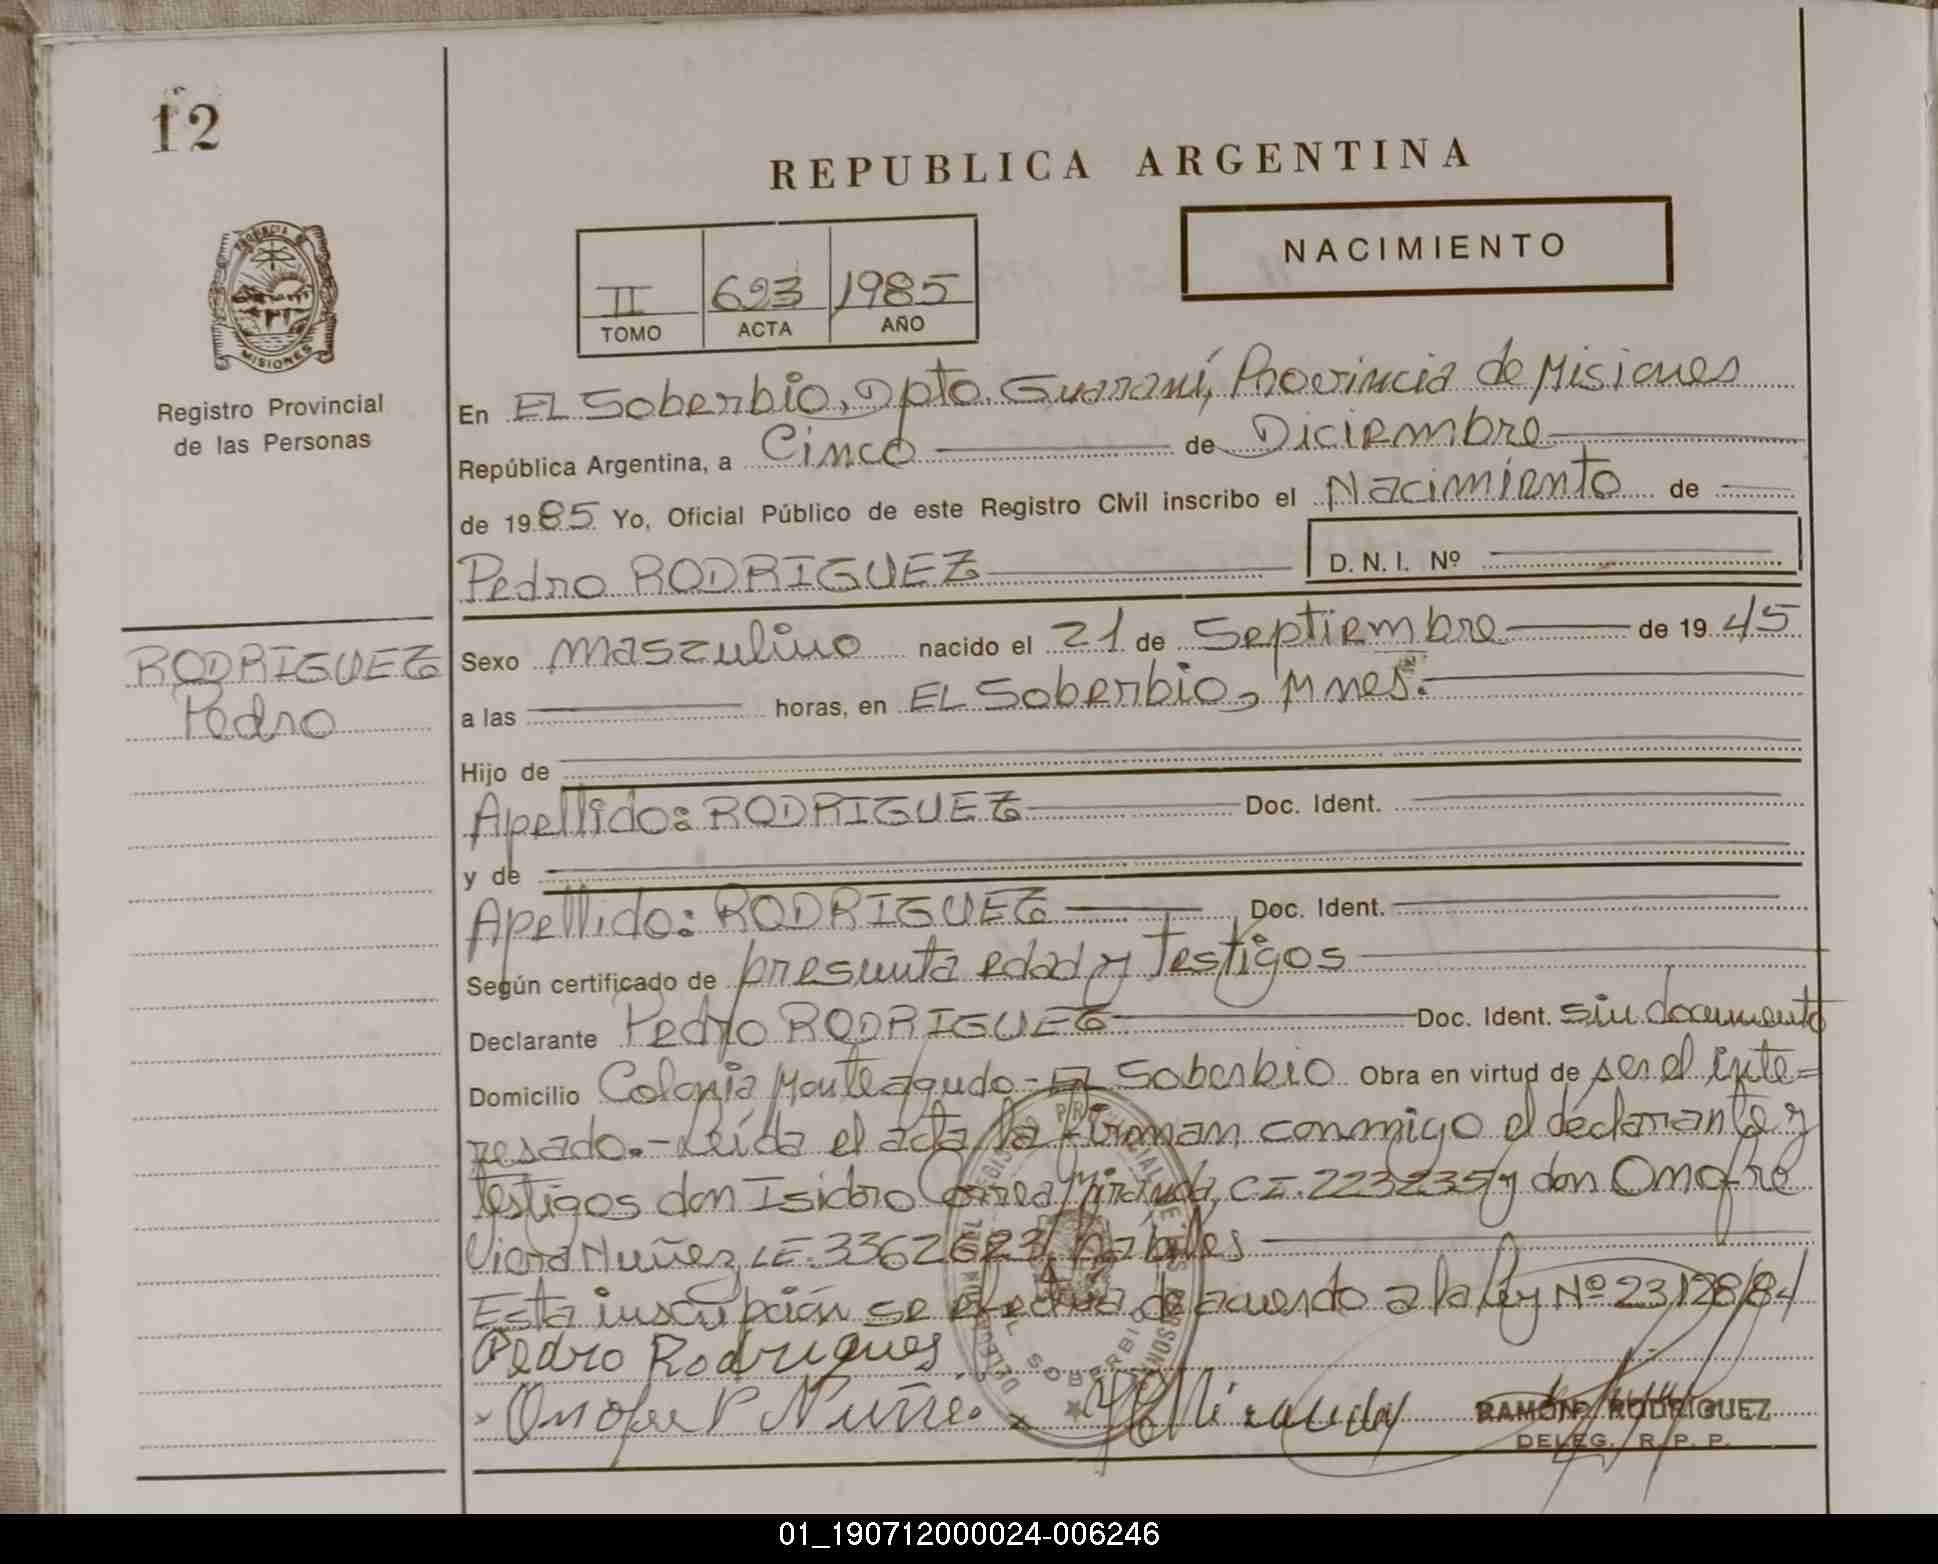 12
REPUBLICA ARGENTINA
NACIMIENTO
II 623 1985
TOMO ACTA AÑO
PROVINCIA DE
MISIONES
Registro Provincial
de las Personas
En EL Soberbio, Dpto. Guaraní, Provincia de Misiones
República Argentina, a Cinco de Diciembre
de 1985 Yo, Oficial Público de este Registro Civil inscribo el Nacimiento de
Pedro RODRIGUEZ D. N. I. Nº
RODRIGUEZ
Pedro
Sexo masculino nacido el 21 de Septiembre de 1945
a las horas, en EL Soberbio, Mnes.
Hijo de
Apellido: RODRIGUEZ Doc. Ident.
y de
Apellido: RODRIGUEZ Doc. Ident.
Según certificado de presunta edad y Testigos
Declarante Pedro RODRIGUEZ Doc. Ident. sin documento
Domicilio Colonia Monteagudo - EL Soberbio Obra en virtud de ser el inte=
resado.- Leída el acta la firman conmigo el declarante y
testigos don Isidro Correa Miranda, C.I. 223235 y don Onofre
Viera Nuñez, LE. 3362623, habiles
Esta inscripción se efectua de acuerdo a la ley Nº 23128/84
Pedro Rodrigues
Onofre V Nuñes x Miranda
RAMÓN RODRIGUEZ
DELEG. R. P. P.
01_190712000024-006246